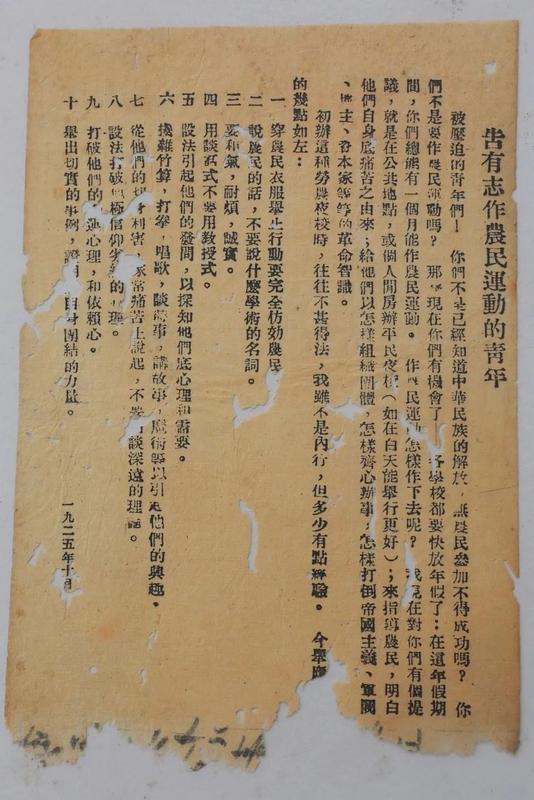 告有志作農民運動的靑年
被壓迫的靑年們！　你們不是已經知道中華民族的解放，無農民參加不得成功嗎？　你
們不是要作農民運動嗎？　那麼現在你們有機會了！　各學校都要快放年假了：在這年假期
間，你們總能有一個月能作農民運動。　作農民運動怎樣作下去呢？　我現在對你們有個提
議，就是在公共地點，或個人閒房辦平民夜校（如在白天能舉行更好）；來指導農民，明白
他們自身底痛苦之由來；給他們以怎樣組織團體，怎樣齊心辦事，怎樣打倒帝國主義、軍閥
、地主、資本家等等的革命智識。
初辦這種勞農夜校時，往往不甚得法，我雖不是內行，但多少有點經驗。　今舉應
的幾點如左：
一　穿農民衣服舉止行動要完全仿効農民
二　說農民的話，不要說什麼學術的名詞。
三　要和氣，耐煩，誠實。
四　用談話式不要用教授式。
五　設法引起他們的發問，以探知他們底心理和需要。
六　打拳，唱歌，談時事，講故事，魔術等以引起他們的興趣。
七　從他們的切身利害，家常痛苦上說起，不要談深遠的理論。
八　設法打破
九　打破他們的心理，和依賴心。
十　舉出切實的事例，證明自身團結的力量。
一九二五年十月